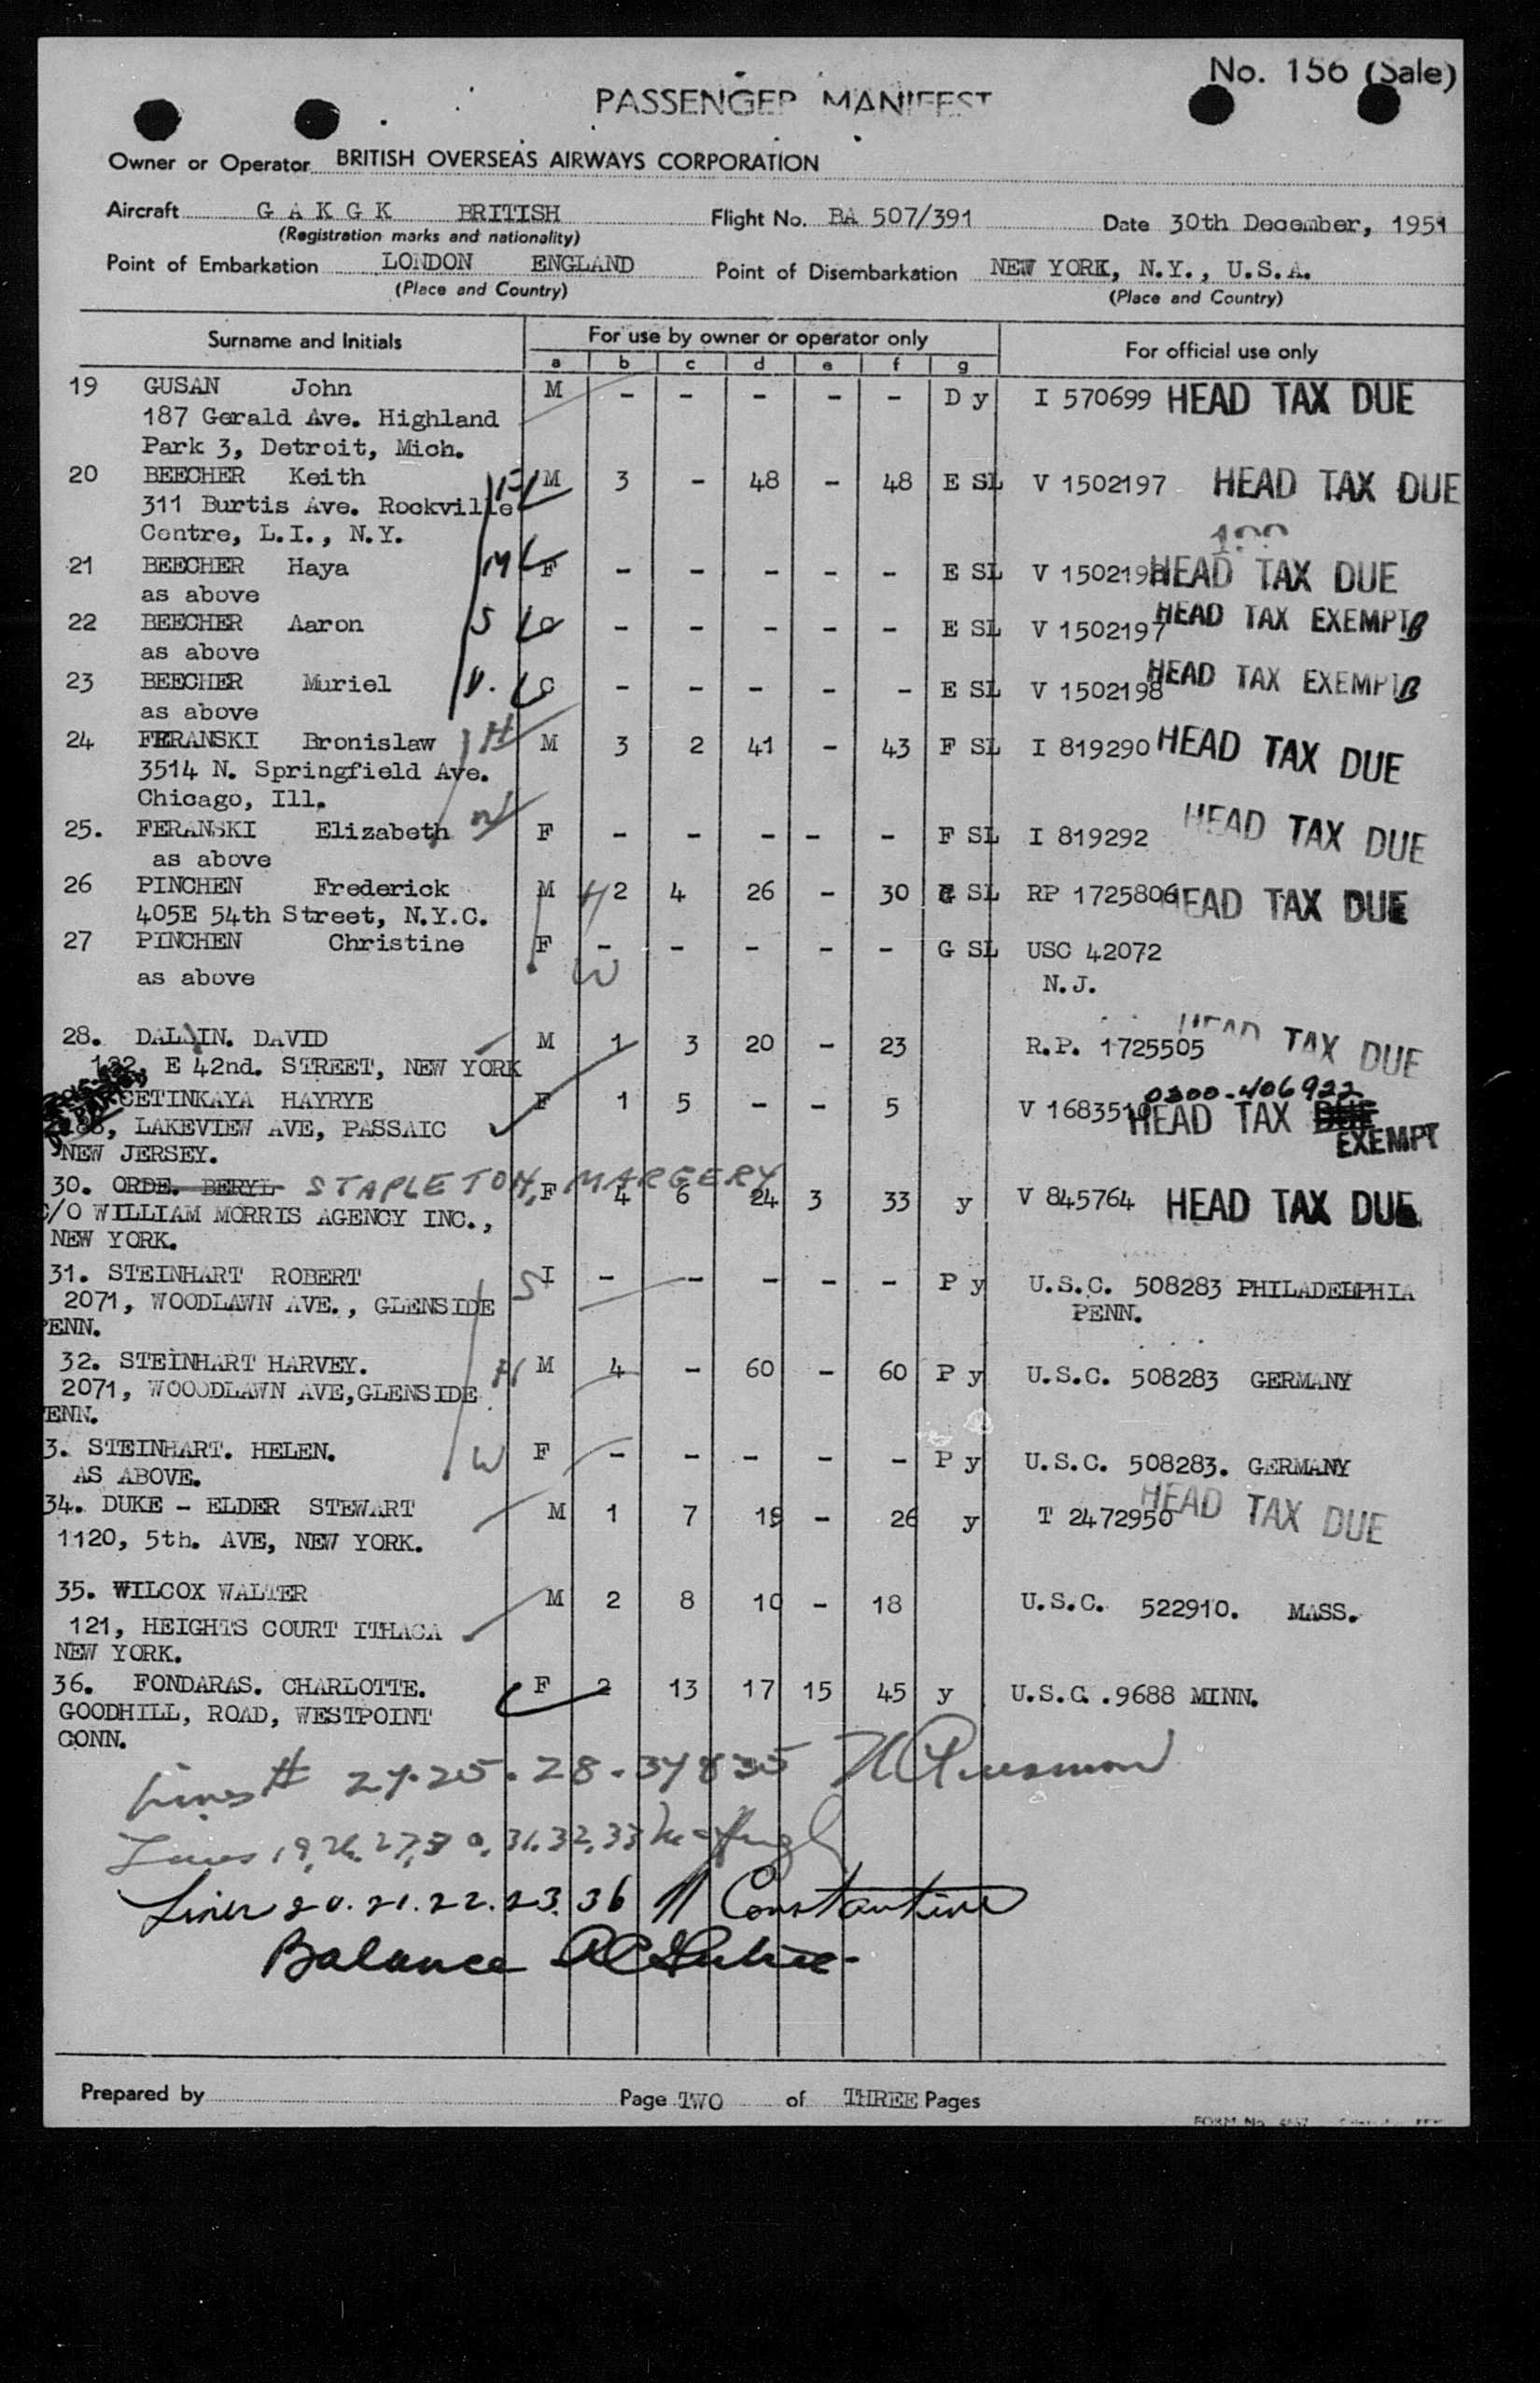 No. 156 (Sale)
PASSENGER MANIFEST
Owner or Operator BRITISH OVERSEAS AIRWAYS CORPORATION
Aircraft G A K G K BRITISH Flight No. BA 507/391 Date 30th December, 1951
(Registration marks and nationality)
Point of Embarkation LONDON ENGLAND Point of Disembarkation NEW YORK, N.Y., U.S.A.
(Place and Country) (Place and Country)
Surname and Initials For use by owner or operator only For official use only
a b c d e f g
19 GUSAN John M - - - - - D y I 570699 HEAD TAX DUE
187 Gerald Ave. Highland
Park 3, Detroit, Mich.
20 BEECHER Keith M 3 - 48 - 48 E SL V 1502197 HEAD TAX DUE
311 Burtis Ave. Rockville
Centre, L.I., N.Y.
21 BEECHER Haya M F - - - - - E SL V 1502198 HEAD TAX DUE
as above
22 BEECHER Aaron S C - - - - - E SL V 1502197 HEAD TAX EXEMPT
as above
23 BEECHER Muriel D. C - - - - - E SL V 1502198 HEAD TAX EXEMPT
as above
24 FERANSKI Bronislaw H M 3 2 41 - 43 F SL I 819290 HEAD TAX DUE
3514 N. Springfield Ave.
Chicago, Ill.
25. FERANSKI Elizabeth W F - - - - - F SL I 819292 HEAD TAX DUE
as above
26 PINCHEN Frederick M H 2 4 26 - 30 G SL RP 1725806 HEAD TAX DUE
405E 54th Street, N.Y.C.
27 PINCHEN Christine F - - - - - G SL USC 42072
as above W N.J.
28. DALLIN. DAVID M 1 3 20 - 23 R.P. 1725505 HEAD TAX DUE
132, E 42nd. STREET, NEW YORK
0300-406922
CETINKAYA HAYRYE F 1 5 - - 5 V 1683510 HEAD TAX DUE EXEMPT
188, LAKEVIEW AVE, PASSAIC
NEW JERSEY.
30. ORDE. BERYL STAPLETON, MARGERY F 4 6 24 3 33 y V 845764 HEAD TAX DUE
C/O WILLIAM MORRIS AGENCY INC.,
NEW YORK.
31. STEINHART ROBERT S I - - - - - P y U.S.C. 508283 PHILADELPHIA
2071, WOODLAWN AVE., GLENSIDE PENN.
PENN.
32. STEINHART HARVEY. H M 4 - 60 - 60 P y U.S.C. 508283 GERMANY
2071, WOOODLAWN AVE,GLENSIDE
ENN.
3. STEINHART. HELEN. W F - - - - - P y U.S.C. 508283. GERMANY
AS ABOVE.
34. DUKE - ELDER STEWART M 1 7 19 - 26 y T 2472950 HEAD TAX DUE
1120, 5th. AVE, NEW YORK.
35. WILCOX WALTER M 2 8 10 - 18 U.S.C. 522910. MASS.
121, HEIGHTS COURT ITHACA
NEW YORK.
36. FONDARAS. CHARLOTTE. F 2 13 17 15 45 y U.S.C. .9688 MINN.
GOODHILL, ROAD, WESTPOINT
CONN.
Lines # 24.25.28.34 & 35
Lines 19, 26, 27, 30, 31, 32, 33
Lines 20.21.22.23.36 Constantine
Balance
Prepared by Page TWO of THREE Pages
FORM No.